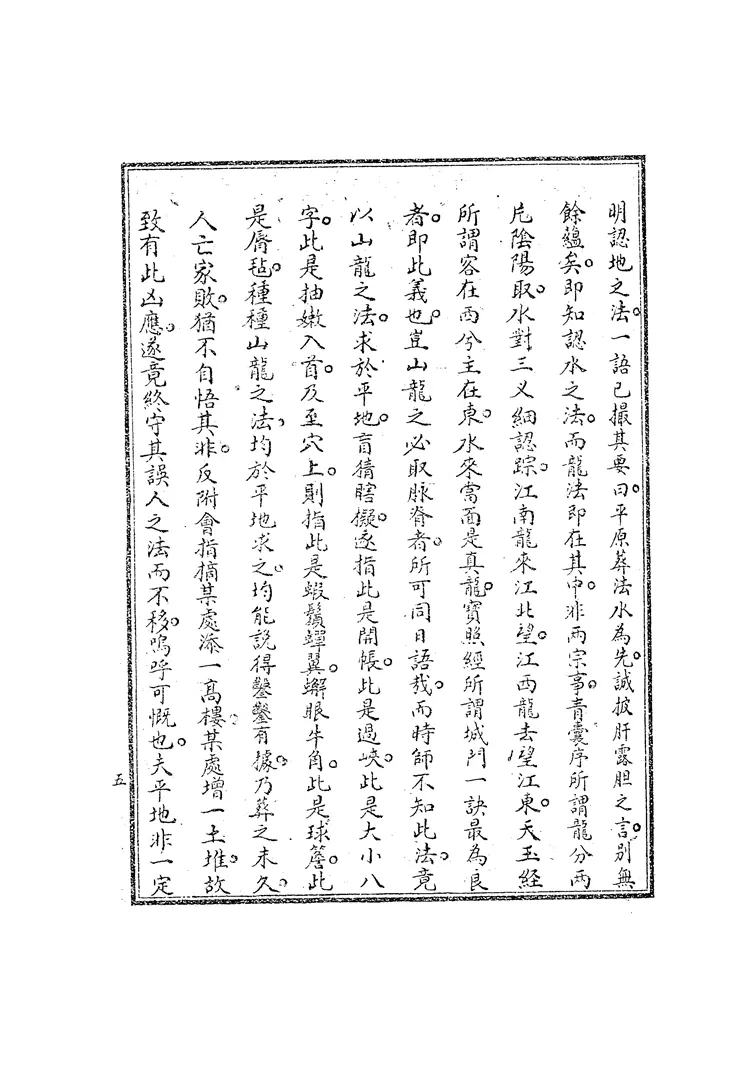 明認地之法。一語已撮其要。曰平原葬法水為先。誠披肝露胆之言。別無
餘蘊矣。即知認水之法。而龍法即在其中。非兩宗事。青囊序所謂龍分兩
片陰陽取。水對三义細認踪。江南龍來江北望。江西龍去望江東。天玉經
所謂客在西兮主在東。水來當面是真龍。寶照經所謂城門一訣最為良
者。即此義也。豈山龍之必取脉脊者。所可同日語哉。而時師不知此法。竟
以山龍之法。求於平地。盲猜瞎擬。遂指此是開帳。此是過峽。此是大小八
字。此是抽嫩入首。及至穴上。則指此是蝦鬚蟬翼。蠏眼牛角。此是球簷。此
是唇毡。種種山龍之法。均於平地求之。均能說得鑿鑿有據。乃葬之未久。
人亡家敗。猶不自悟其非。反附會指摘某處添一高樓。某處增一土堆。故
致有此凶應。遂竟終守其誤人之法而不移。嗚呼可慨也。夫平地非一定
五